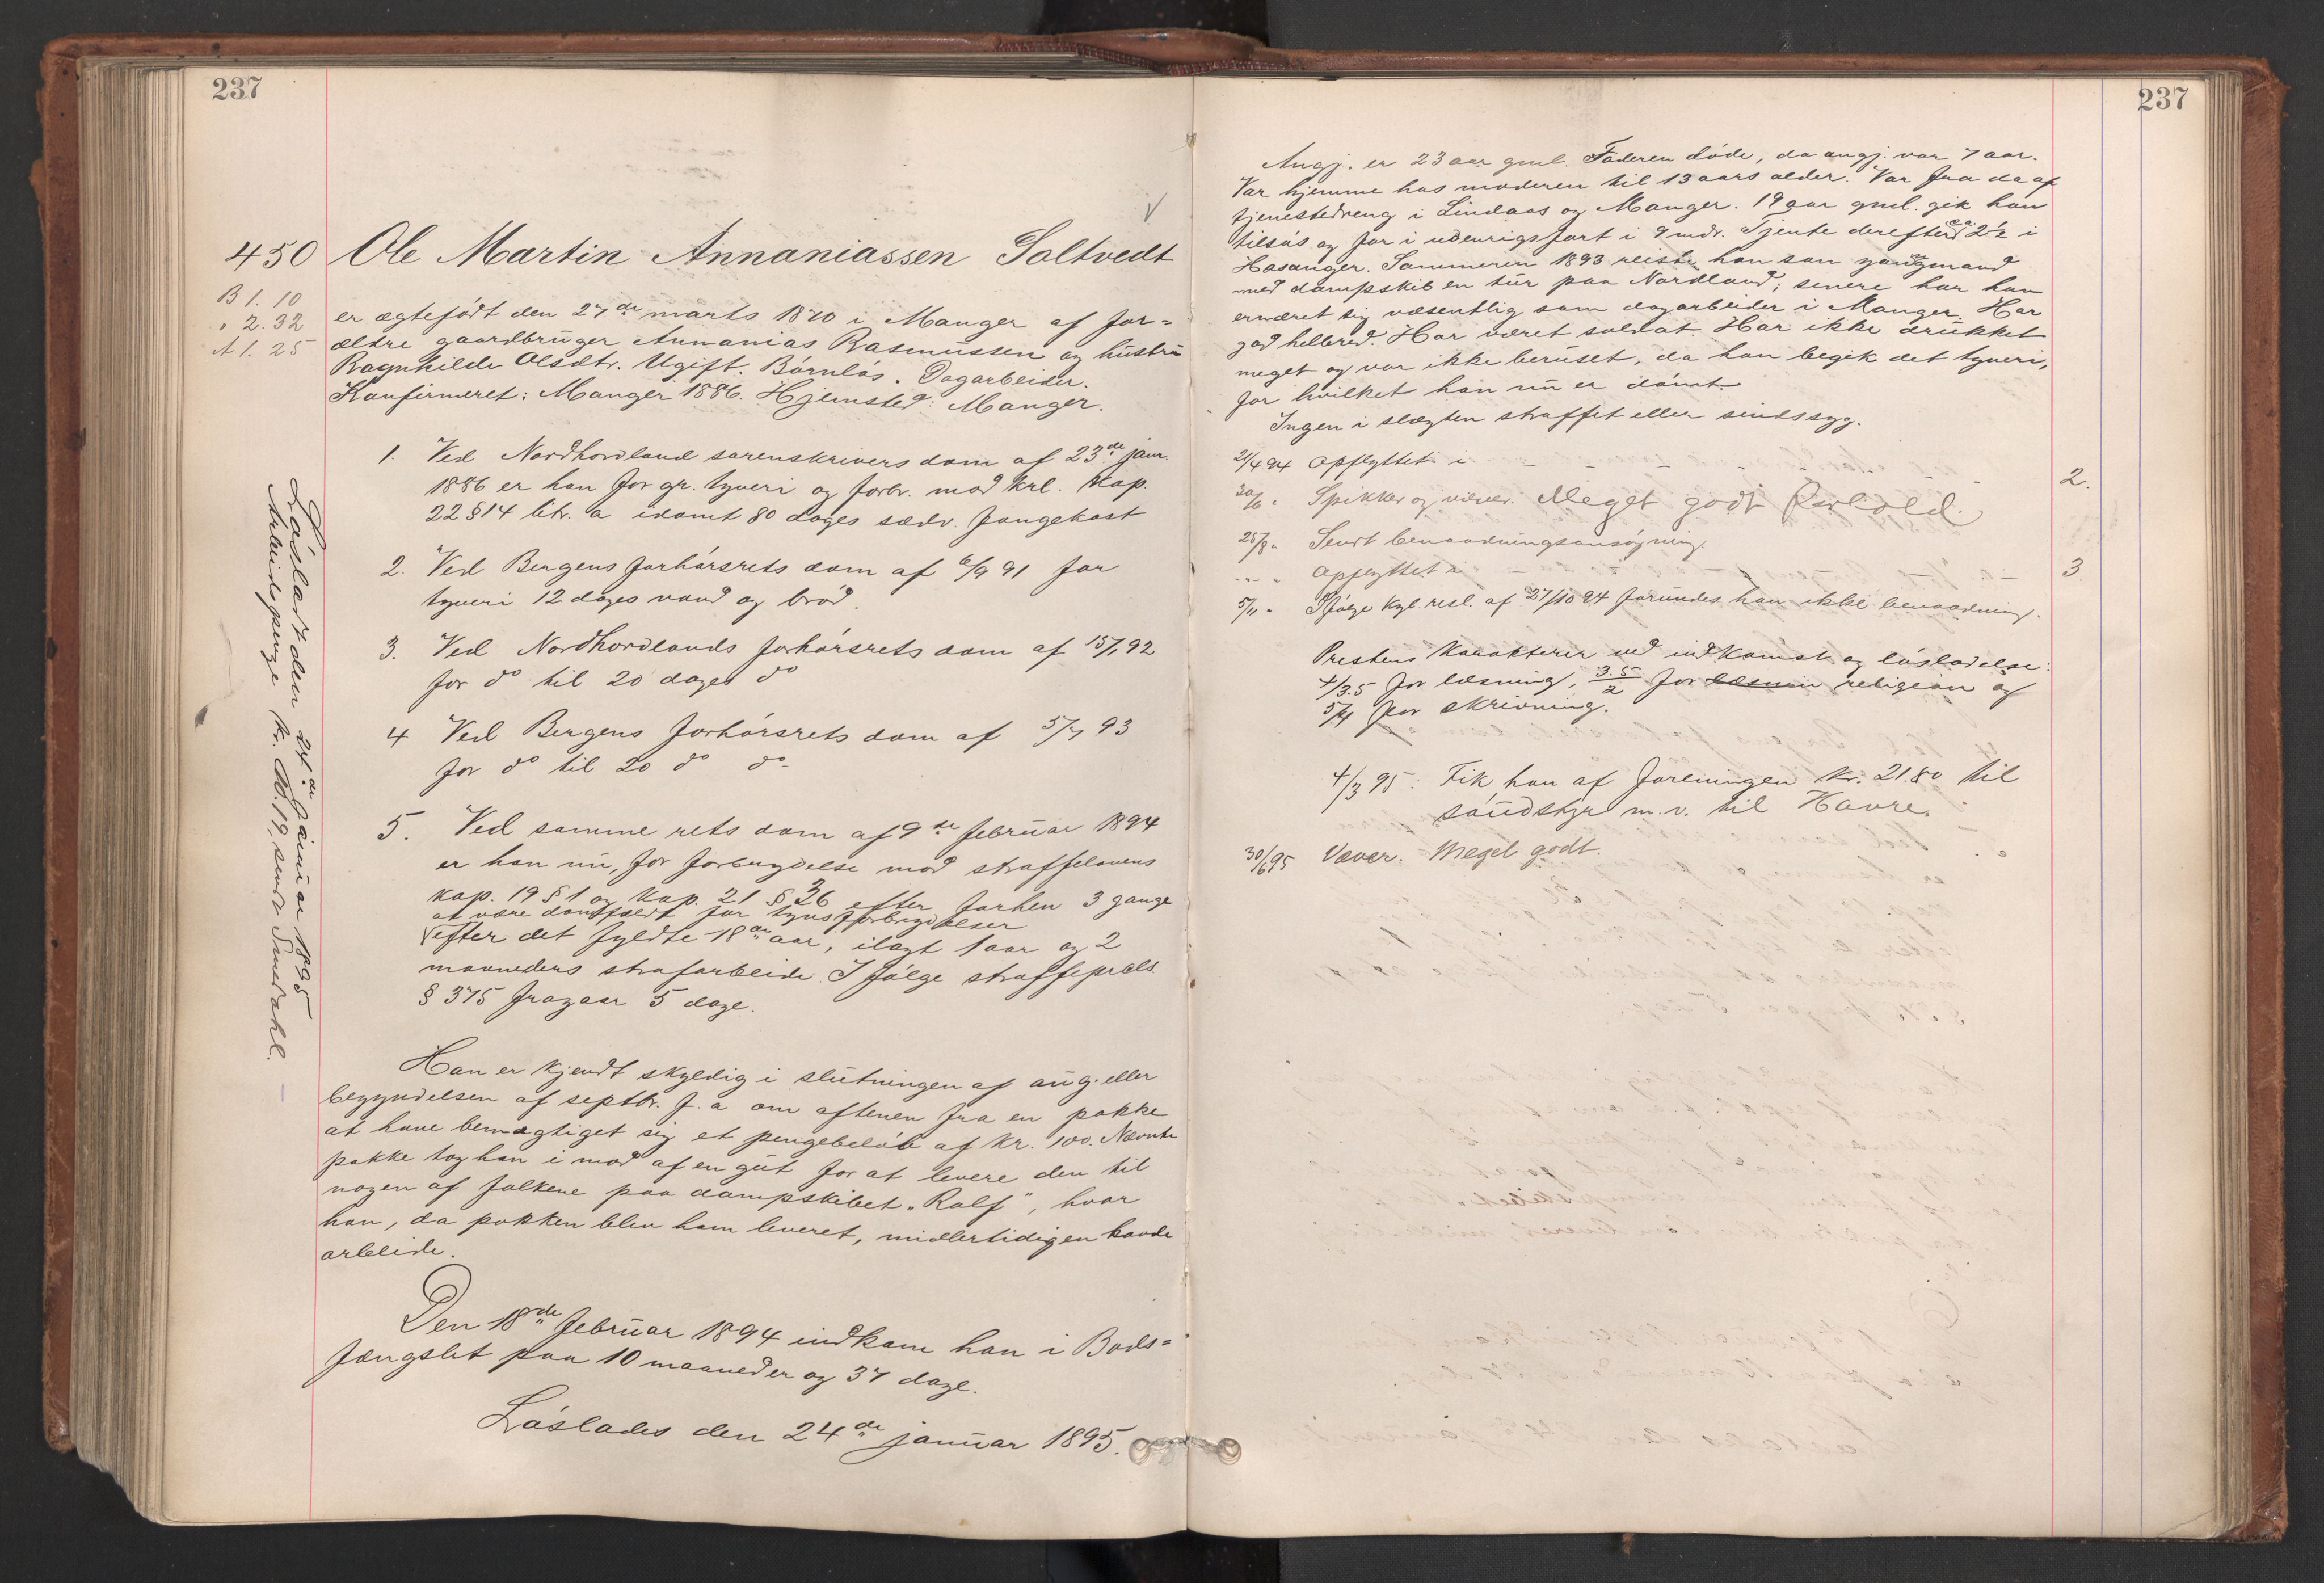 237
450 Ole Martin Annaniassen Soltvedt
B 1. 10
" 2. 32
A 1. 25
er ægtefødt den 27de marts 1870 i Manger af for=
ældre gaardbruger Annanias Rasmussen og hustru
Ragnhilde Olsdtr. Ugift. Børnløs. Dagarbeider.
Konfirmeret: Manger 1886. Hjemsted: Manger.
1. Ved Nordhordland sorenskrivers dom af 23de janr.
1886 er han for gr. tyveri og forbr. mod krl. kap.
22 § 14 litr. a idømt 80 dages sædv. fangekost
2. Ved Bergens forhørsrets dom af 6/9 91 for
tyveri 12 dages vand og brød.
3. Ved Nordhordlands forhørsrets dom af 15/1 92
for do til 20 dages do
4 Ved Bergens forhørsrets dom af 5/7 93
for do til 20 do do
5. Ved samme rets dom af 9de februar 1894
er han nu, for forbrydelse mod straffelovens
kap. 19 § 1 og kap. 21 § 36 efter forhen 3 gange
at være domfældt for tyvsforbrydelser
efter det fyldte 18de aar, ilagt 1 aar og 2
maaneders strafarbeide. Ifølge straffeprcls.
§ 375 fragaar 5 dage.
Han er kjendt skyldig i slutningen af aug. eller
begyndelsen af septbr. f. a om aftenen fra en pakke
at have bemægtiget sig et pengebeløb af kr. 100. Nævnte
pakke tog han i mod af en gut for at levere den til
nogen af folkene paa dampskibet "Ralf", hvor
han, da pakken blev ham leveret, midlertidigen havde
arbeide.
Den 18de februar 1894 indkom han i Bods=
fængslet paa 10 maaneder og 37 dage.
Løslades den 24de januar 1895.
Løsladt den 24de januar 1895
Arbeidspenge kr. 19, sendt
237
Angj. er 23 aar gml. Faderen døde, da angj. var 7 aar.
Var hjemme hos moderen til 13 aars alder. Var fra da af
tjenestedreng i Lindaas og Manger. 19 aar gml. gik han
tilsøs og for i udenrigsfart i 9 mdr. Tjente derefter ca. 2½ i
Hosanger. Sommeren 1893 reiste han som
med dampskib en tur paa Nordland; senere har han
ernæret sig væsentlig som dagarbeider i Manger. Har
god helbred. Har været soldat. Har ikke drukket
meget og var ikke beruset, da han begik det tyveri,
for hvilket han nu er dømt.
Ingen i slægten straffet eller sindssyg.
21/4 94 Opflyttet i 2.
30/6 " Spikker og væver. Meget godt Forhold.
25/8 " Sendt benaadningsansøgning.
" " Opflyttet i 3.
5/11 " Ifølge kgl. resl. af 27/10 94 forundes han ikke benaadning.
Prestens karakterer ved indkomst og løsladelse:
4/3.5 for læsning, 3.5/2 for læsnin religion og
5/4 for skrivning.
4/3 95: Fik han af foreningen kr. 21.80 til
søudstyr m.v. til Havre.
30/6 95 Væver. Meget godt.